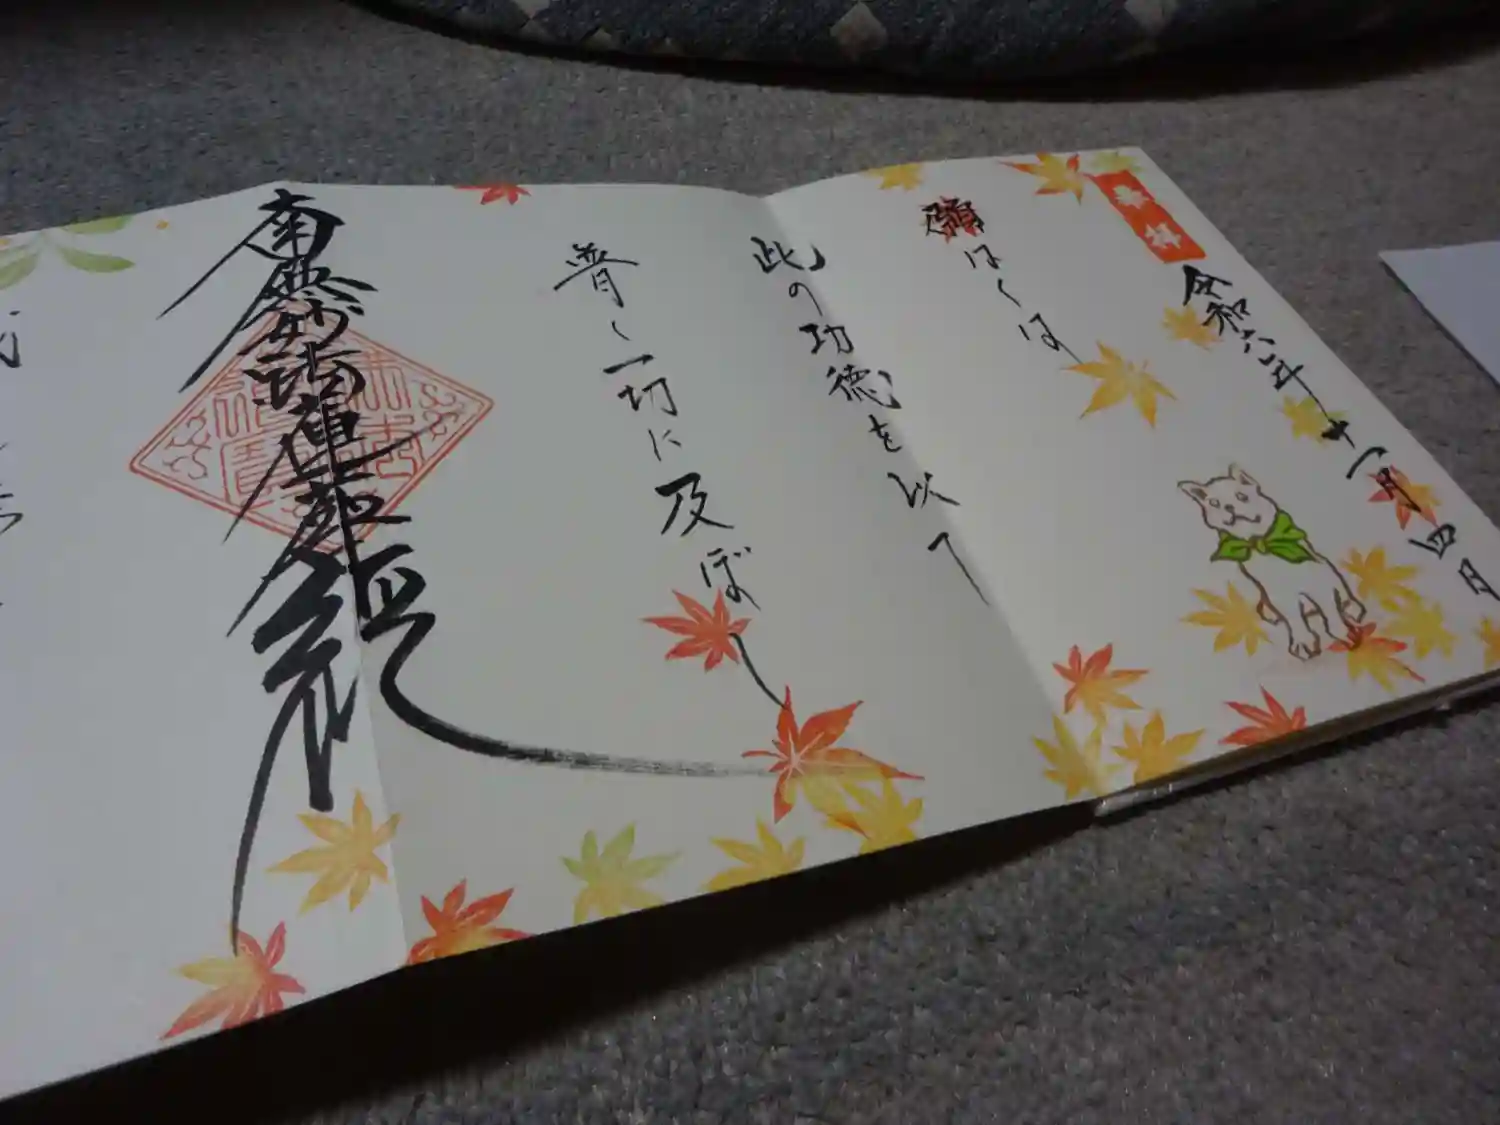 奉拝
令和六年十一月四日
願はくは
此の功徳を以て
普く一切に及ぼ
南無妙法蓮華経